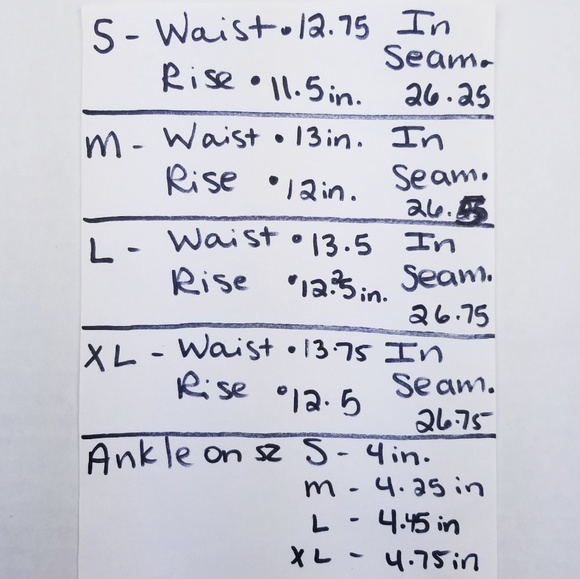 S - Waist • 12.75 In
Seam.
Rise • 11.5 in. 26.25
M - Waist • 13 in. In
Rise • 12 in. Seam.
26.5
L - Waist • 13.5 In
Rise • 12.25 in. Seam.
26.75
XL - Waist • 13.75 In
Rise • 12.5 Seam.
26.75
Ankle on SZ S - 4 in.
M - 4.25 in
L - 4.45 in
XL - 4.75 in